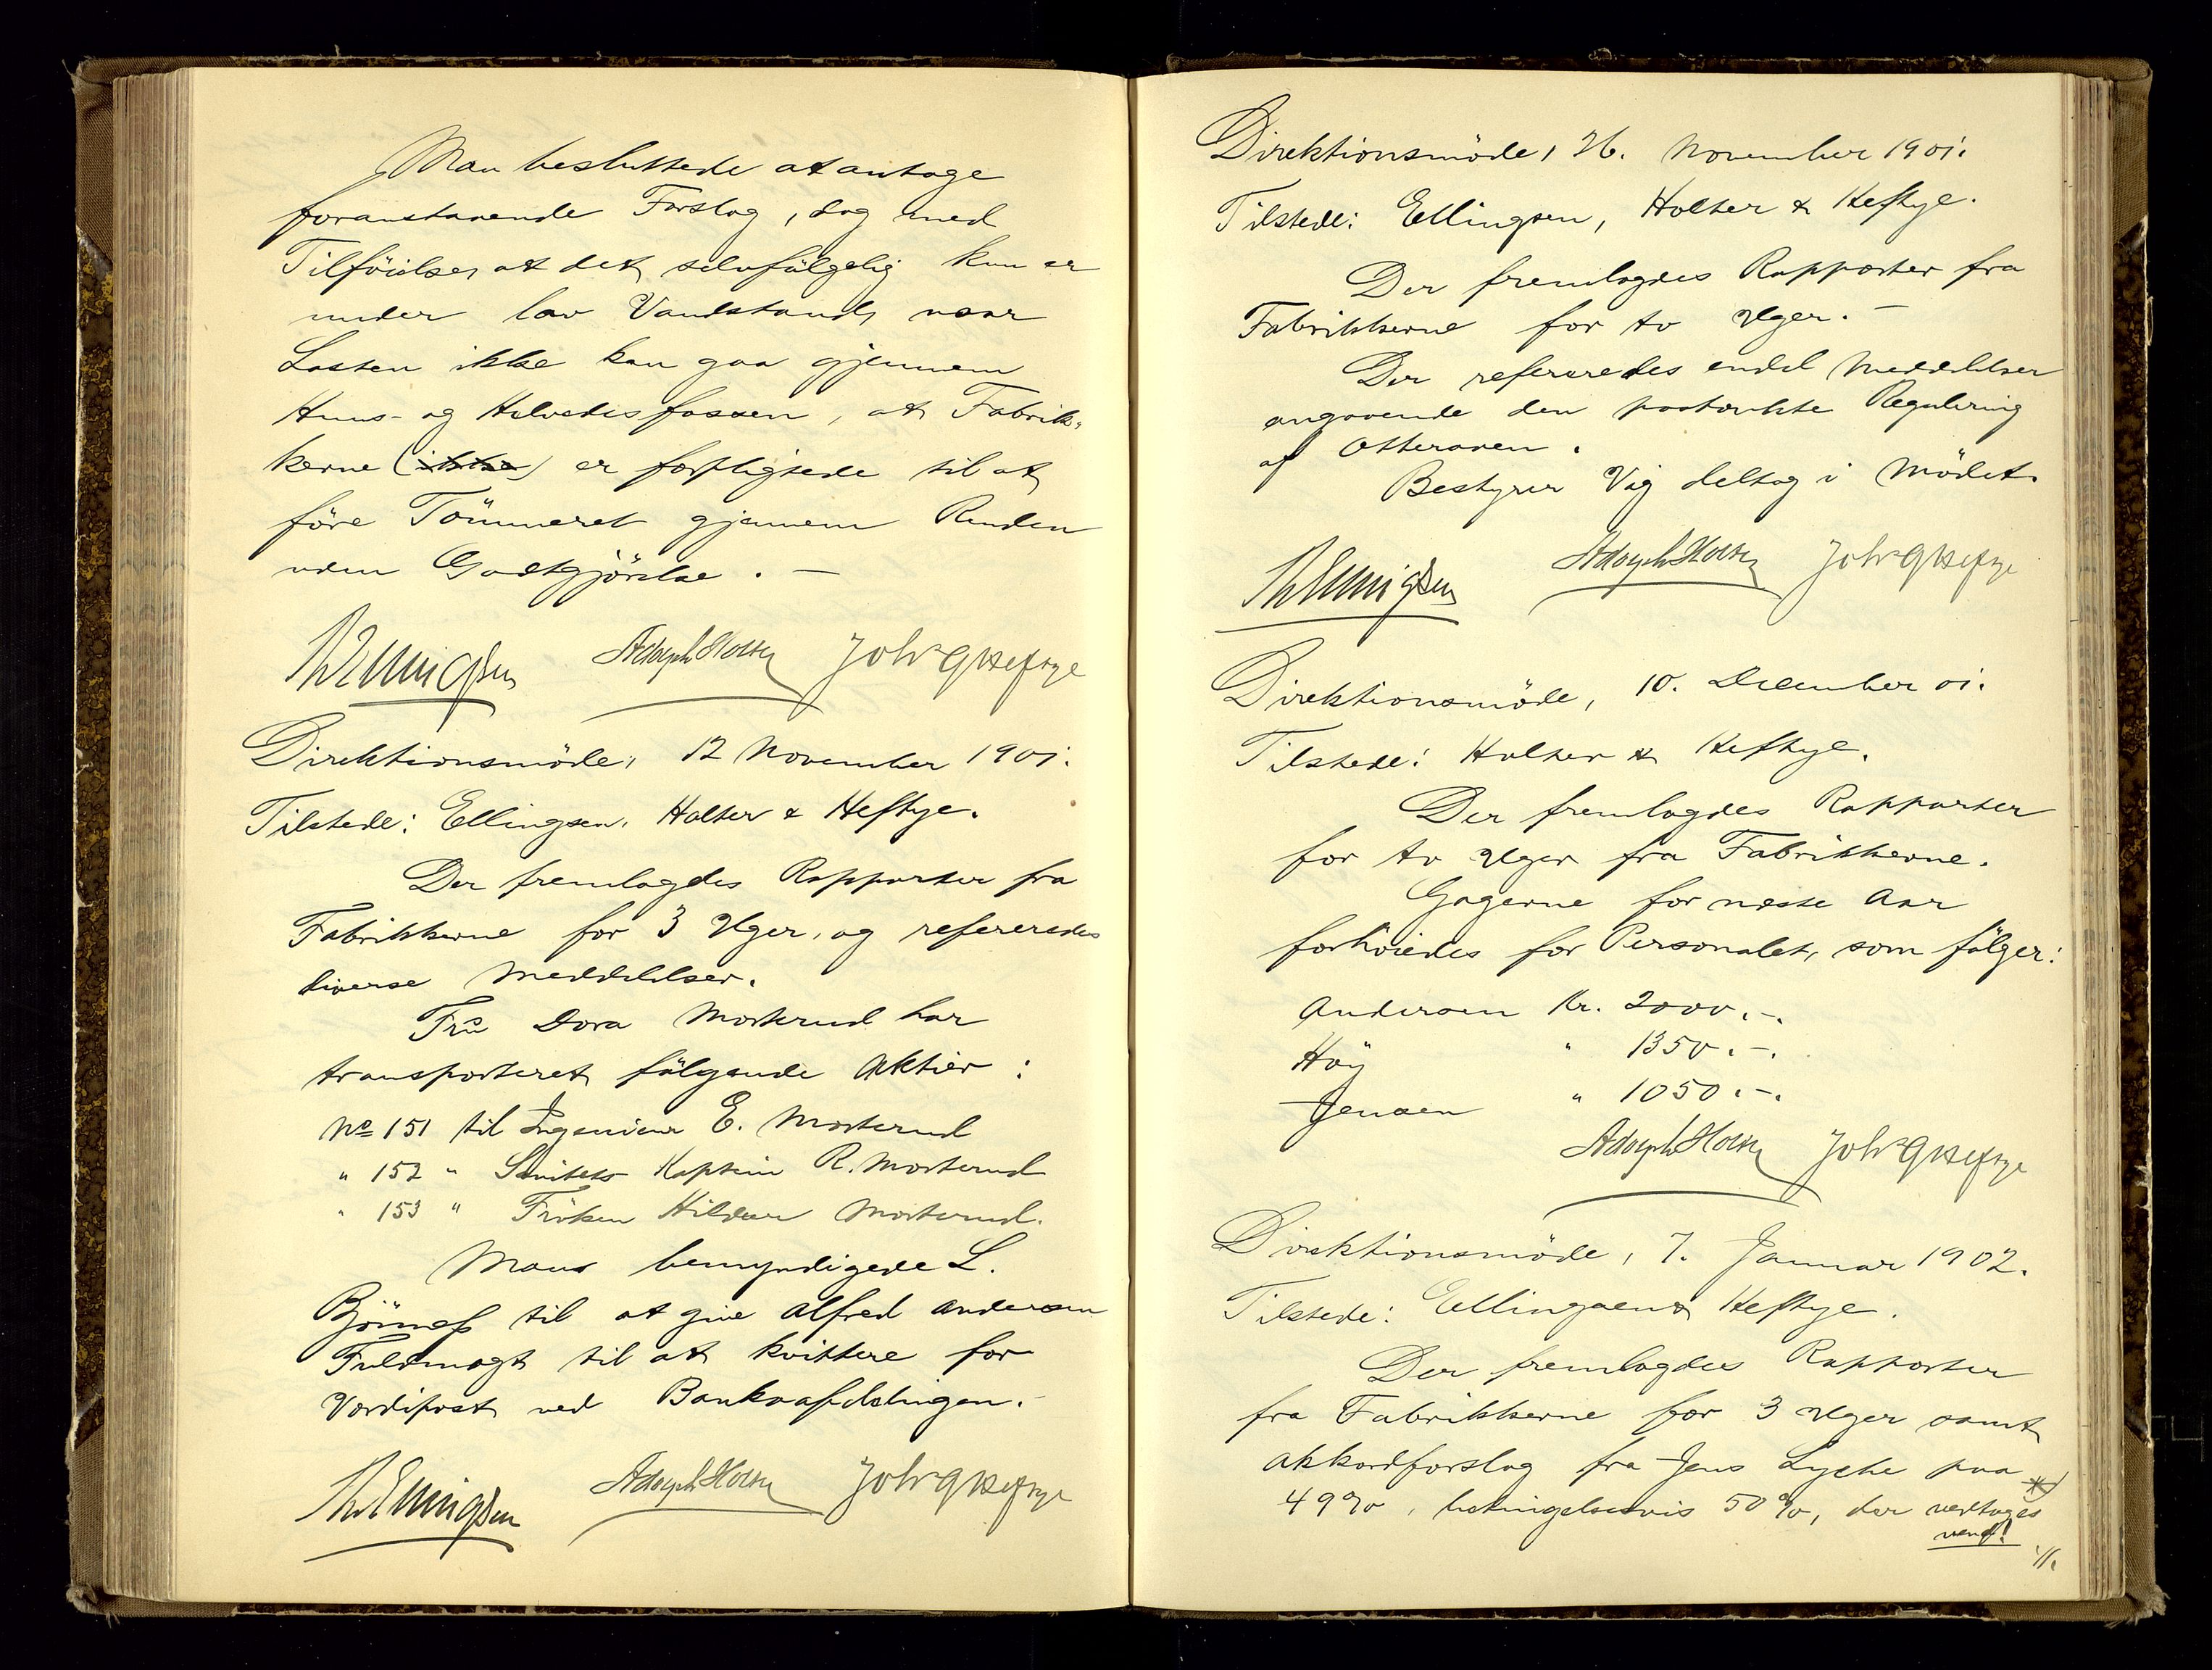 Man besluttede at antage
foranstaaende Forslag, dog med
Tilföielse, at det selvfölgelig kun er
under lav Vandstand, naar
Lasten ikke kan gaa gjennem
Huns- og Helvedesfossen, at Fabrik-
kerne (ikke) er forpligtede til at
före Tömmeret gjennem Renden
uden Godtgjörelse. —
ThEllingsen Adolph Holter Joh G Heftye
Direktionsmöde, 12 November 1901.
Tilstede: Ellingsen, Holter & Heftye.
Der fremlagdes Rapporter fra
Fabrikkerne for 3 Uger, og refereredes
diverse Meddelelser.
Fru Dora Morterud har
transporteret fölgende Aktier:
No 151 til Ingenieur E. Morterud
" 152 " Sanitets Kaptein R. Morterud
" 153 " Fröken Hildur Morterud.
Man bemyndigede L.
Björness til at give Alfred Andersen
Fuldmagt til at kvittere for
Værdipost ved Bankvafdelingen.
ThEllingsen Adolph Holter Joh G Heftye
Direktionsmöde, 26. November 1901.
Tilstede: Ellingsen, Holter & Heftye.
Der fremlagdes Rapporter fra
Fabrikkerne for to Uger. —
Der refereredes endel Meddelelser
angaaende den paatænkte Regulering
af Otteraaen.
Bestyrer Vig deltog i Mödet.
ThEllingsen Adolph Holter Joh G Heftye
Direktionsmöde, 10. December 01.
Tilstede: Holter & Heftye.
Der fremlagdes Rapporter
for to Uger fra Fabrikkerne.
Gagerne for næste Aar
forhöiedes for Personalet, som fölger:
Andersen Kr. 2000.-.
Höy " 1350.-.
Jensen " 1050.-.
Adolph Holter Joh G Heftye
Direktionsmöde, 7. Januar 1902.
Tilstede: Ellingsen & Heftye.
Der fremlagdes Rapporter
fra Fabrikkerne for 3 Uger samt
Akkordforslag fra Jens Lyche paa
49%, betingelsesvis 50%, der vedtoges *)
vend!
./.